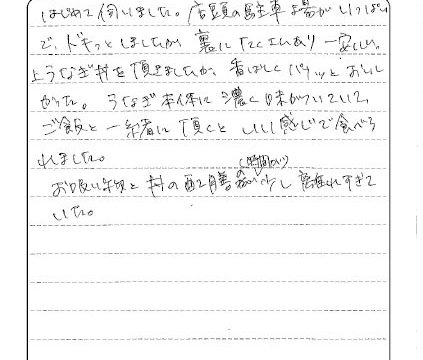 はじめて伺いました。店頭の駐車場がいっぱい
で、ドキっとしましたが、裏にたくさんあり一安心。
上うなぎ丼を頂きましたが、香ばしくパリッとおいし
かった。うなぎ本体に濃く味がついていて、
ご飯と一緒に頂くといい感じで食べら
れました。
(時間が)
お吸い物と丼の配膳が少し離れすぎて
いた。